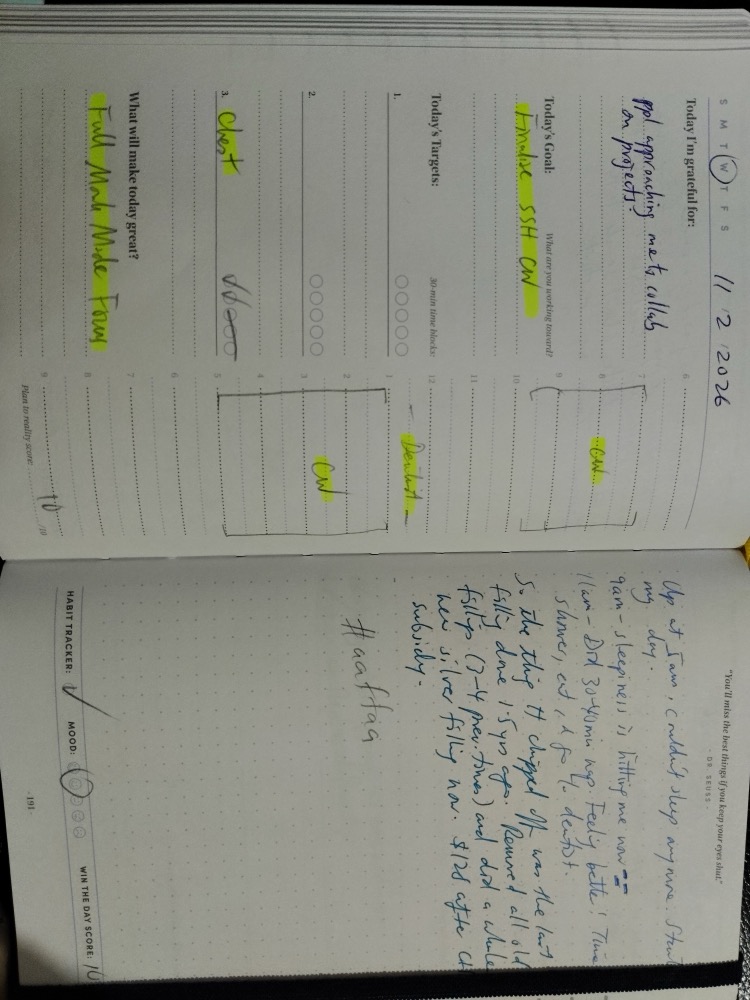 S M T W T F S 11 / 2 / 2026
Today I'm grateful for:
ppl approaching me to collab
on projects?
Today's Goal: What are you working toward?
Finalise SSH CW
Today's Targets: 30-min time blocks:
1.
2.
3. Chest
What will make today great?
Full Mode Focus
6
7
8 CW
9
10
11
12
- Dentist -
1
2
3 CW
4
5
6
7
8
9
Plan to reality score: 10 /10
"You'll miss the best things if you keep your eyes shut."
- DR. SEUSS -
Up at 5am, couldn't sleep anymore. Start
my day.
9am - sleepiness is hitting me now ==
11am - Did 30-40min nap. Feeling better! Time
shower, eat, & go to dentist.
So the thing that chipped off was the last
filling done 1.5yrs ago. Removed all old
fillings (3-4 prev. times) and did a whole
new silver filling now. after
subsidy.
HABIT TRACKER: MOOD: WIN THE DAY SCORE: 10
- 191 -